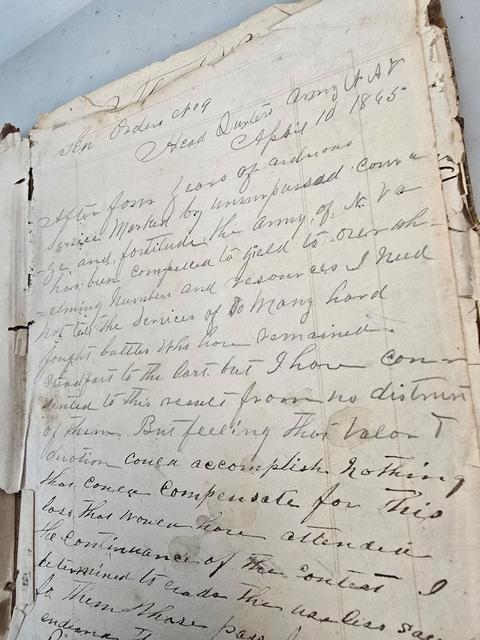 Gen Orders No 9
Head Quarters Army N A V
April 10 1865
After four years of arduous
service Marked by unsurpassed coura
ge and fortitude the Army of N. Va
has been compelled to yield to overwh-
-elming Numbers and resources I need
not tell the services of so Many hard
fought battles who have remained
steadfast to the last but I have con-
sented to this result from no distrust
of them. But feeling that Valor &
devotion could accomplish Nothing
that could compensate for this
loss that would have attended
the continuance of the contest I
determined to the useless
to them whose
endeared